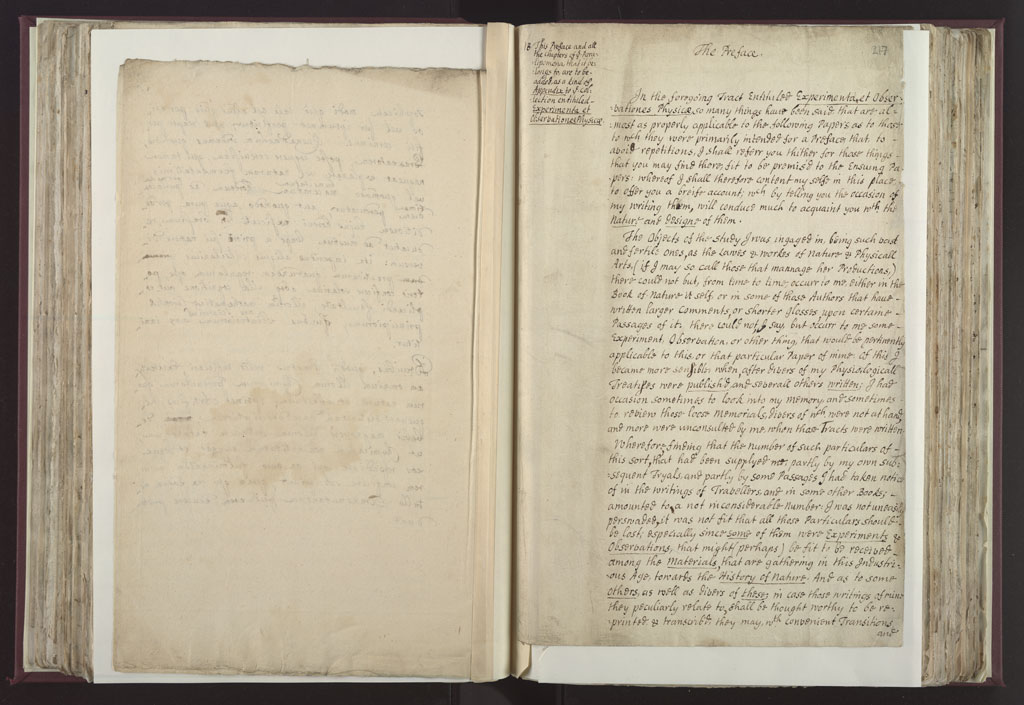 217
The Preface.
This Preface and all
the Chapters of
to are to be
added, as a kind of
Appendix to
lection entituled
Experimenta et
Observationes Physicæ
In the foregoing Tract Entituled Experimenta, et Obser-
vationes Physicæ, so many things have been said, that are al-
most as properly applicable to the following Papers, as to those
to wch they were primarily intended for a Preface; that to
avoid repetitions, I shall referr you thither for those things
that you may find there, fit to be premised to the Ensuing Pa-
pers: whereof I shall therefore content my self in this place,
to offer you a breife account; wch by telling you the occasion of
my writing them, will conduce much to acquaint you wth the
Nature and designe of them.
The Objects of the study I was ingaged in, being such vast
and fertile ones, as the Lawes & workes of Nature & Physicall
Arts, (if I may so call those that mannage her Productions,)
there could not but, from time to time, occurr to me, either in the
Book of Nature it self or in some of those Authors that have
written larger Comments, or shorter glosses upon certaine
Passages of it; there could not, I say, but occurr to me some
Experiment, Observation, or other thing, that would be pertinently
applicable to this, or that particular Paper of mine. Of this I
became more sensible, when, after divers of my Physiologicall
Treatises were publish'd, and severall others written; I had
occasion sometimes to look into my memory, and sometimes
to review those loose Memorials, divers of wch were not at hand,
and more were unconsulted by me, when those Tracts were written
Wherefore, finding that the number of such particulars of
this sort, that had been supplyed me, partly by my own sub-
sequent Tryals, and partly by some Passages I had taken notice
of in the writings of Travellers, and in some other Books;
amounted to a not inconsiderable Number: I was not uneasily
perswaded, it was not fit that all those Particulars should
be lost, especially since some of them were Experiments &
Observations, that might (perhaps) be fit to be received
among the Materials, that are gathering in this Industri-
ous Age, towards the History of Nature. And as to some
others, as well as divers of these; in case those writings of mine
they peculiarly relate to, shall be thought worthy to be re-
printed & transcribed; they may, wth convenient Transitions,
and